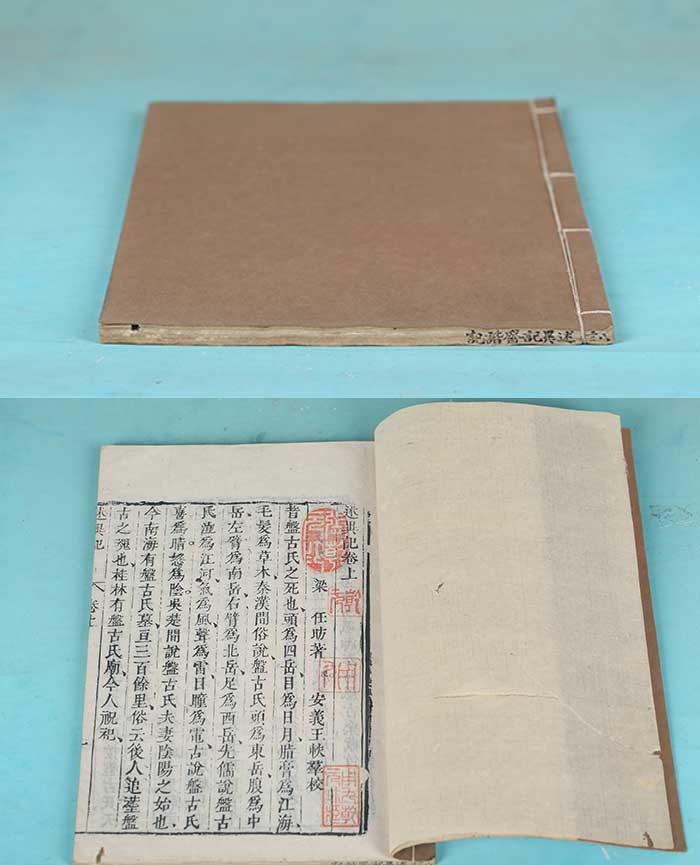 述異記齊諧記
述異記卷上
梁 任昉著 安義王軼羣校
昔盤古氏之死也、頭爲四岳、目爲日月、脂膏爲江海、
毛髮爲草木、秦漢間俗說盤古氏頭爲東岳、腹爲中
岳、左臂爲南岳、右臂爲北岳、足爲西岳、先儒說盤古
氏泣爲江河、氣爲風、聲爲雷、目瞳爲電、古說盤古氏
喜爲晴、怒爲陰、吳楚間說盤古氏夫妻、陰陽之始也、
今南海有盤古氏墓、亘三百餘里、俗云後人追葬盤
古之魂也、桂林有盤古氏廟、今人祝祀、
述異記 卷上 一